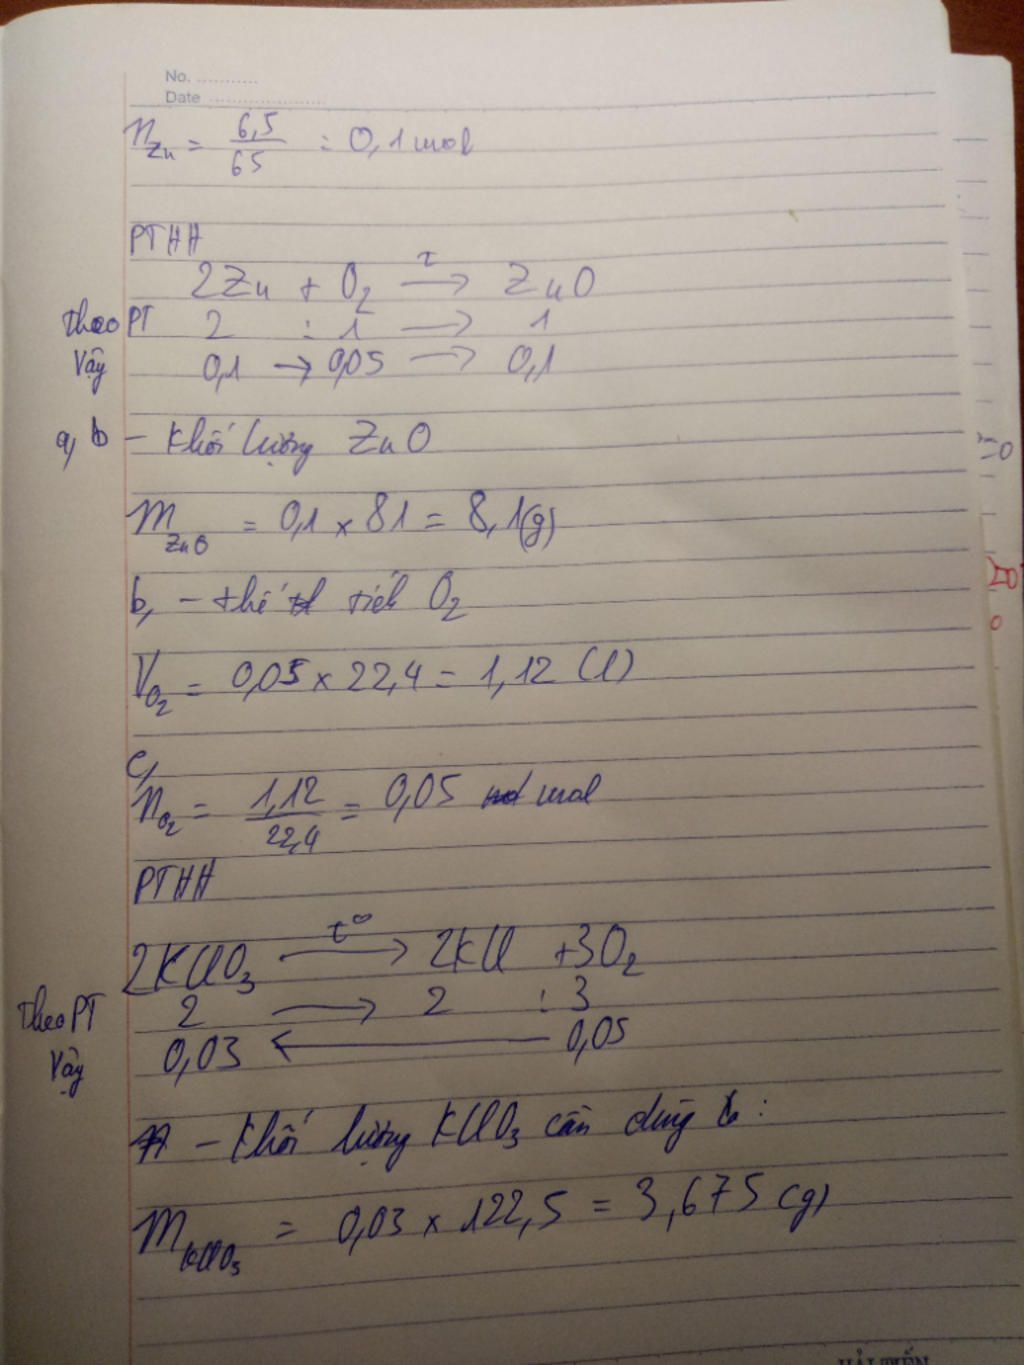 No. ...........
Date .....................
n Zn = 6,5 / 65 = 0,1 mol
PTHH
2Zn + O2 t→ ZnO
Theo PT 2 : 1 → 1
Vậy 0,1 → 0,05 → 0,1
a, b - Khối lượng ZnO
m ZnO = 0,1 x 81 = 8,1(g)
b, - thể tích O2
V O2 = 0,05 x 22,4 = 1,12 (l)
c,
n O2 = 1,12 / 22,4 = 0,05 mol
PTHH
2KClO3 t°→ 2KCl + 3O2
Theo PT 2 → 2 : 3
Vậy 0,03 ← 0,05
- Khối lượng KClO3 cần dùng là :
m KClO3 = 0,03 x 122,5 = 3,675 (g)
HẢI TIẾN